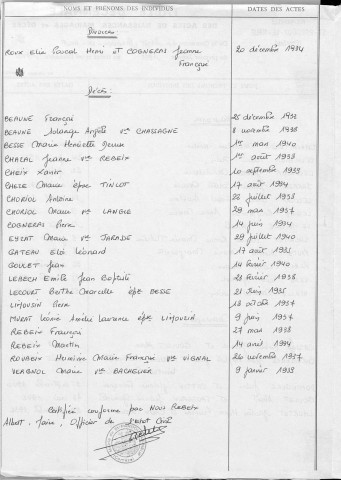 NOMS ET PRÉNOMS DES INDIVIDUS DATES DES ACTES
Divorces
ROUX Elie Pascal Henri et COGNERAS Jeanne 20 décembre 1934
Françoise
Décès
BEAUNE François 25 décembre 1933
BEAUNE Solange Angèle Vve CHASSAGNE 8 novembre 1938
BESSE Marie Henriette 1er mars 1940
CHAZAL Jeanne Vve REBEIX 1er août 1938
CHEIX Xavier 10 septembre 1939
Marie épse TINLOT 17 août 1934
CHORIOL Antoine 22 juillet 1938
CHORIOL Marie Vve LANGLE 29 mars 1937
COGNERAS Pierre 14 juin 1934
EYZAT Marie Vve JARADE 29 juillet 1940
GATEAU Eloi Léonard 17 août 1935
GOULET Jean 14 février 1940
LEBECH Emile Jean Baptiste 23 février 1938
LECOURT Berthe Marcelle épse BESSE 21 juin 1935
LIMOUSIN Pierre 18 octobre 1937
MURAT Léonie Amélie Laurence épse LIMOUZIN 9 juin 1937
REBEIX François 27 mars 1938
REBEIX Martin 14 avril 1934
Marie Françoise Vve VIGNAL 26 novembre 1937
VERGNOL Marie Vve BACHELIER 9 janvier 1938
Certifié conforme par Nous REBEIX
Albert, Maire, Officier de l'Etat Civil